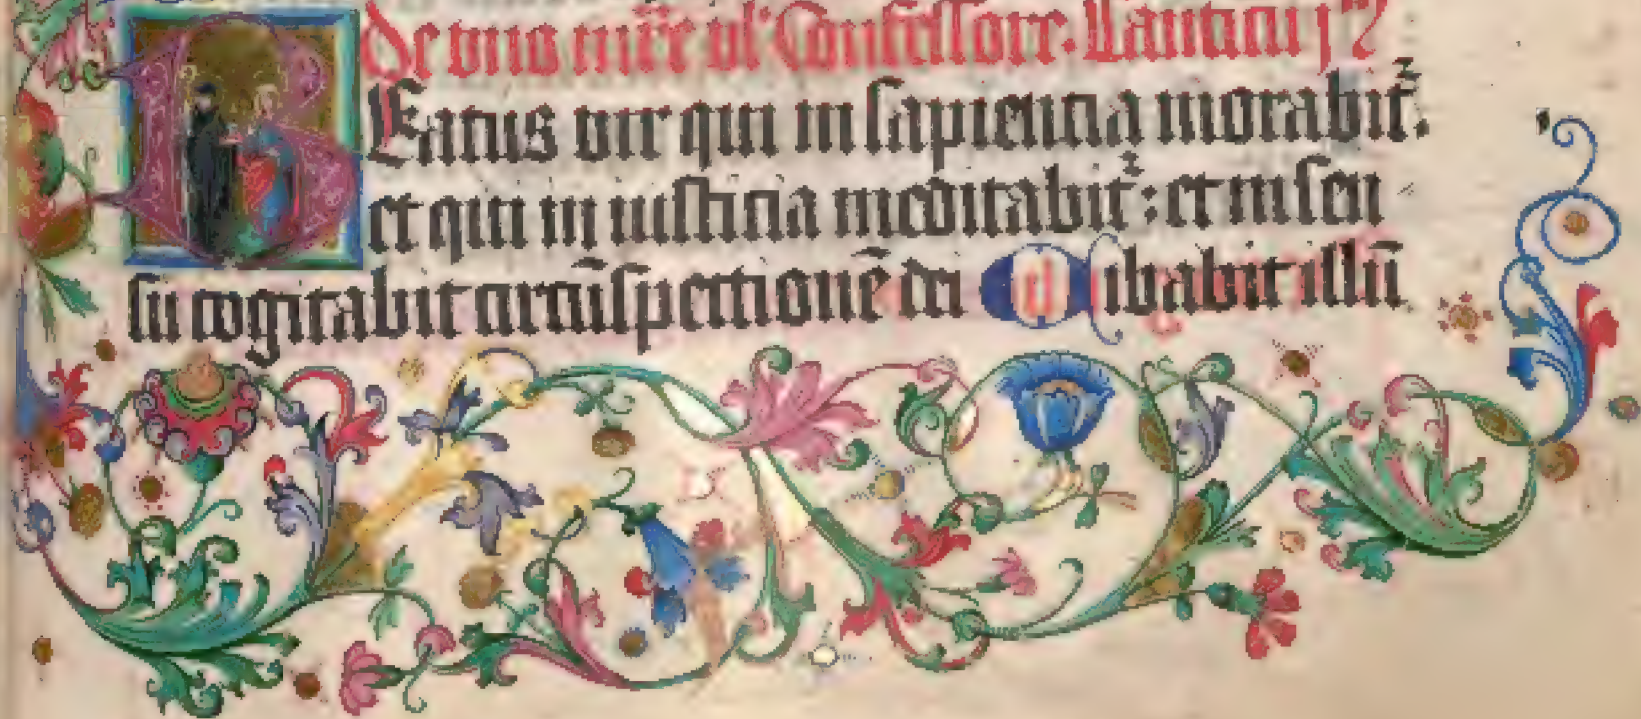 De vno mr̄e vl' Confessore. Cantica
BEatus vir qui in sapiencia morabit᷑.
et qui in iusticia meditabit᷑: et in sen
su cogitabit circūspectionē dei Cibabit illū